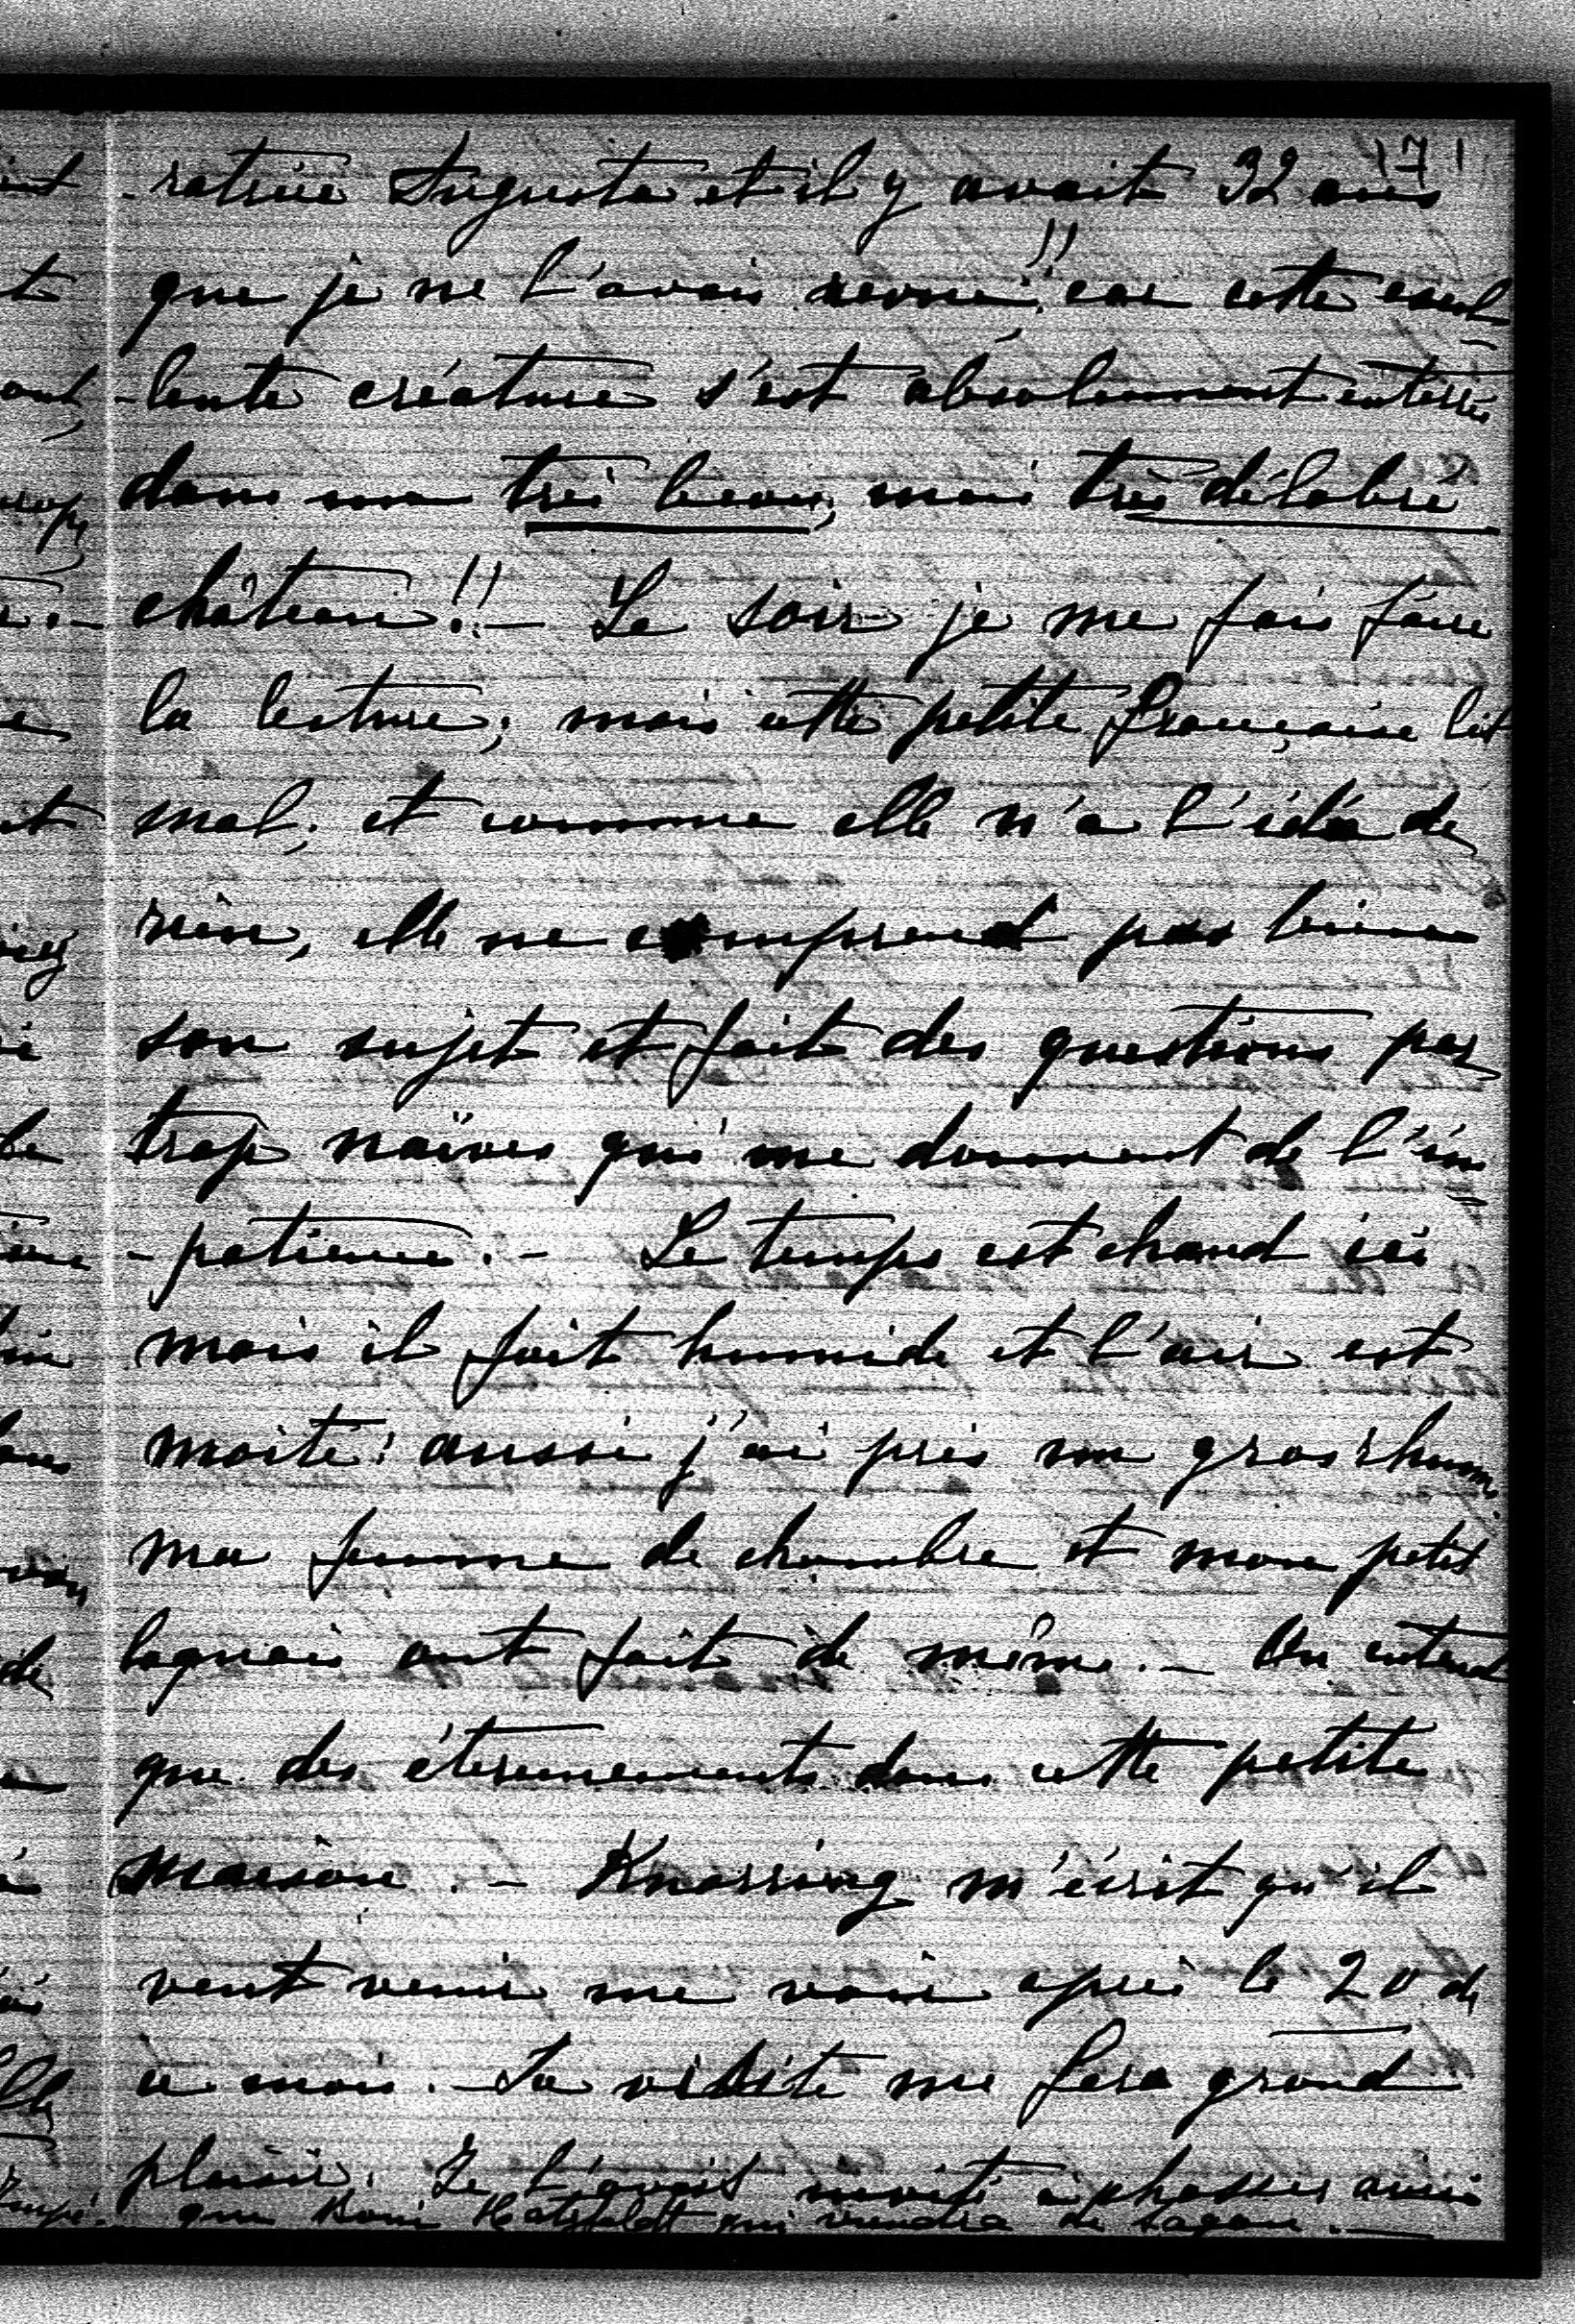 171
-ratrice Augusta et il y avait 32 ans
que je ne l'avais revue!!! car cette excel-
-lente créature s'est absolument enterrée
dans un très beau, mais très délabré
château!! – Le soir je me fais faire
la lecture, mais cette petite française lit
mal, et comme elle n'a l'idée de
rien, elle ne comprend pas bien
son sujet et fait des questions par
trop naïves qui me donnent de l'im-
-patience. – Le temps est chaud ici
mais il fait humide et l'air est
moite: aussi j'ai pris un gros rhume
ma femme de chambre et mon petit
laquais ont fait de même. – On entend
que des éternuements dans cette petite
maison. – Knorring m'écrit qu'il
veut venir me voir après le 20 de
ce mois. – Sa visite me fera grand
plaisir. Je l'avais invité à chasser ainsi
que Boni Hatzfeldt qui viendra de Sagan. –